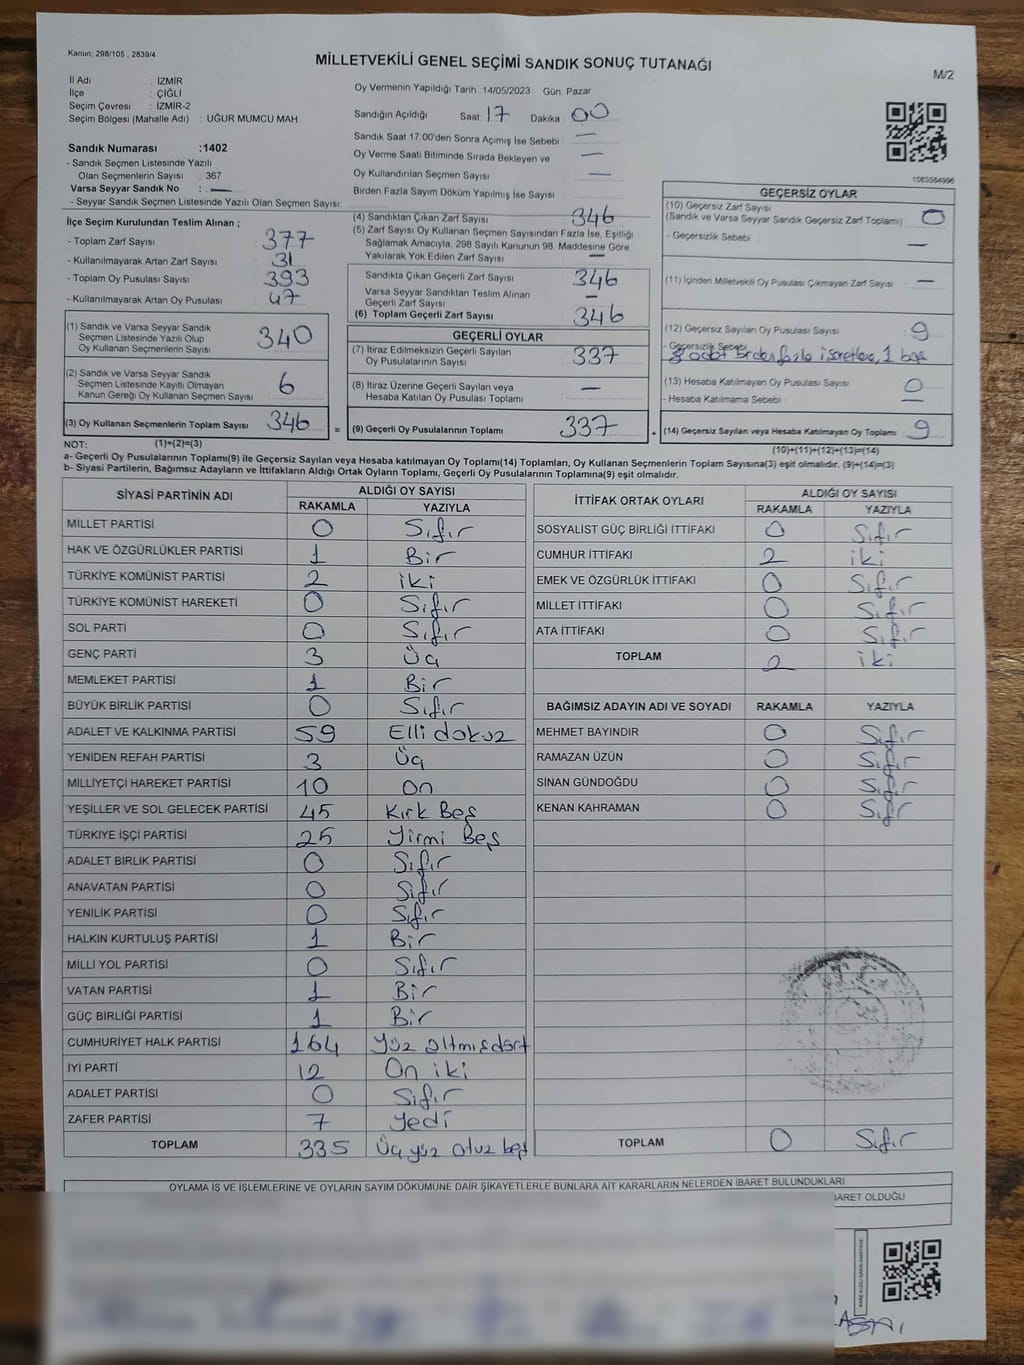 Kanun, 298/105 , 2839/4
MİLLETVEKİLİ GENEL SEÇİMİ SANDIK SONUÇ TUTANAĞI
M/2
İl Adı : İZMİR
İlçe : ÇİĞLİ
Seçim Çevresi : İZMİR-2
Seçim Bölgesi (Mahalle Adı) : UĞUR MUMCU MAH.
Sandık Numarası :1402
- Sandık Seçmen Listesinde Yazılı
Olan Seçmenlerin Sayısı : 367
Varsa Seyyar Sandık No : —
- Seyyar Sandık Seçmen Listesinde Yazılı Olan Seçmen Sayısı:
Oy Vermenin Yapıldığı Tarih :14/05/2023 Gün: Pazar
Sandığın Açıldığı Saat: 17 Dakika : 00
Sandık Saat 17:00'den Sonra Açılmış İse Sebebi : —
Oy Verme Saati Bitiminde Sırada Bekleyen ve —
Oy Kullandırılan Seçmen Sayısı : —
Birden Fazla Sayım Döküm Yapılmış İse Sayısı :
1583584996
İlçe Seçim Kurulundan Teslim Alınan ;
- Toplam Zarf Sayısı : 377
- Kullanılmayarak Artan Zarf Sayısı : 31
- Toplam Oy Pusulası Sayısı : 393
- Kullanılmayarak Artan Oy Pusulası : 47
(1) Sandık ve Varsa Seyyar Sandık
Seçmen Listesinde Yazılı Olup
Oy Kullanan Seçmenlerin Sayısı : 340
(2) Sandık ve Varsa Seyyar Sandık
Seçmen Listesinde Kayıtlı Olmayan
Kanun Gereği Oy Kullanan Seçmen Sayısı : 6
(3) Oy Kullanan Seçmenlerin Toplam Sayısı 346 =
(4) Sandıktan Çıkan Zarf Sayısı : 346
(5) Zarf Sayısı Oy Kullanan Seçmen Sayısından Fazla İse, Eşitliği
Sağlamak Amacıyla, 298 Sayılı Kanunun 98. Maddesine Göre
Yakılarak Yok Edilen Zarf Sayısı : —
Sandıkta Çıkan Geçerli Zarf Sayısı : 346
Varsa Seyyar Sandıktan Teslim Alınan
Geçerli Zarf Sayısı : —
(6) Toplam Geçerli Zarf Sayısı : 346
GEÇERLİ OYLAR
(7) İtiraz Edilmeksizin Geçerli Sayılan
Oy Pusulalarının Sayısı : 337
(8) İtiraz Üzerine Geçerli Sayılan veya
Hesaba Katılan Oy Pusulası Toplamı : —
(9) Geçerli Oy Pusulalarının Toplamı 337 +
GEÇERSİZ OYLAR
(10) Geçersiz Zarf Sayısı
(Sandık ve Varsa Seyyar Sandık Geçersiz Zarf Toplamı) : 0
- Geçersizlik Sebebi : —
(11) İçinden Milletvekili Oy Pusulası Çıkmayan Zarf Sayısı : —
(12) Geçersiz Sayılan Oy Pusulası Sayısı : 9
- Geçersizlik Sebebi : 8 adet birden fazla işaretleme, 1 boş
(13) Hesaba Katılmayan Oy Pusulası Sayısı : 0
- Hesaba Katılmama Sebebi : —
(14) Geçersiz Sayılan veya Hesaba Katılmayan Oy Pusulası Toplamı : 9
NOT: (1)+(2)=(3) (10)+(11)+(12)+(13)=(14)
a- Geçerli Oy Pusulalarının Toplamı(9) ile Geçersiz Sayılan veya Hesaba katılmayan Oy Toplamı(14) Toplamları, Oy Kullanan Seçmenlerin Toplam Sayısına(3) eşit olmalıdır. (9)+(14)=(3)
b- Siyasi Partilerin, Bağımsız Adayların ve İttifakların Aldığı Ortak Oyların Toplamı, Geçerli Oy Pusulalarının Toplamına(9) eşit olmalıdır.
SİYASİ PARTİNİN ADI ALDIĞI OY SAYISI
RAKAMLA YAZIYLA
MİLLET PARTİSİ 0 Sıfır
HAK VE ÖZGÜRLÜKLER PARTİSİ 1 Bir
TÜRKİYE KOMÜNİST PARTİSİ 2 iki
TÜRKİYE KOMÜNİST HAREKETİ 0 Sıfır
SOL PARTİ 0 Sıfır
GENÇ PARTİ 3 Üç
MEMLEKET PARTİSİ 1 Bir
BÜYÜK BİRLİK PARTİSİ 0 Sıfır
ADALET VE KALKINMA PARTİSİ 59 Elli dokuz
YENİDEN REFAH PARTİSİ 3 Üç
MİLLİYETÇİ HAREKET PARTİSİ 10 On
YEŞİLLER VE SOL GELECEK PARTİSİ 45 Kırk Beş
TÜRKİYE İŞÇİ PARTİSİ 25 Yirmi Beş
ADALET BİRLİK PARTİSİ 0 Sıfır
ANAVATAN PARTİSİ 0 Sıfır
YENİLİK PARTİSİ 0 Sıfır
HALKIN KURTULUŞ PARTİSİ 1 Bir
MİLLİ YOL PARTİSİ 0 Sıfır
VATAN PARTİSİ 1 Bir
GÜÇ BİRLİĞİ PARTİSİ 1 Bir
CUMHURİYET HALK PARTİSİ 164 Yüz altmışdört
İYİ PARTİ 12 On iki
ADALET PARTİSİ 0 Sıfır
ZAFER PARTİSİ 7 Yedi
TOPLAM 335 Üçyüz otuz beş
İTTİFAK ORTAK OYLARI ALDIĞI OY SAYISI
RAKAMLA YAZIYLA
SOSYALİST GÜÇ BİRLİĞİ İTTİFAKI 0 Sıfır
CUMHUR İTTİFAKI 2 iki
EMEK VE ÖZGÜRLÜK İTTİFAKI 0 Sıfır
MİLLET İTTİFAKI 0 Sıfır
ATA İTTİFAKI 0 Sıfır
TOPLAM 2 iki
BAĞIMSIZ ADAYIN ADI VE SOYADI RAKAMLA YAZIYLA
MEHMET BAYINDIR 0 Sıfır
RAMAZAN ÜZÜN 0 Sıfır
SİNAN GÜNDOĞDU 0 Sıfır
KENAN KAHRAMAN 0 Sıfır
TOPLAM 0 Sıfır
OYLAMA İŞ VE İŞLEMLERİNE VE OYLARIN SAYIM DÖKÜMÜNE DAİR ŞİKAYETLERLE BUNLARA AİT KARARLARIN NELERDEN İBARET BULUNDUKLARI
İBARET OLDUĞU